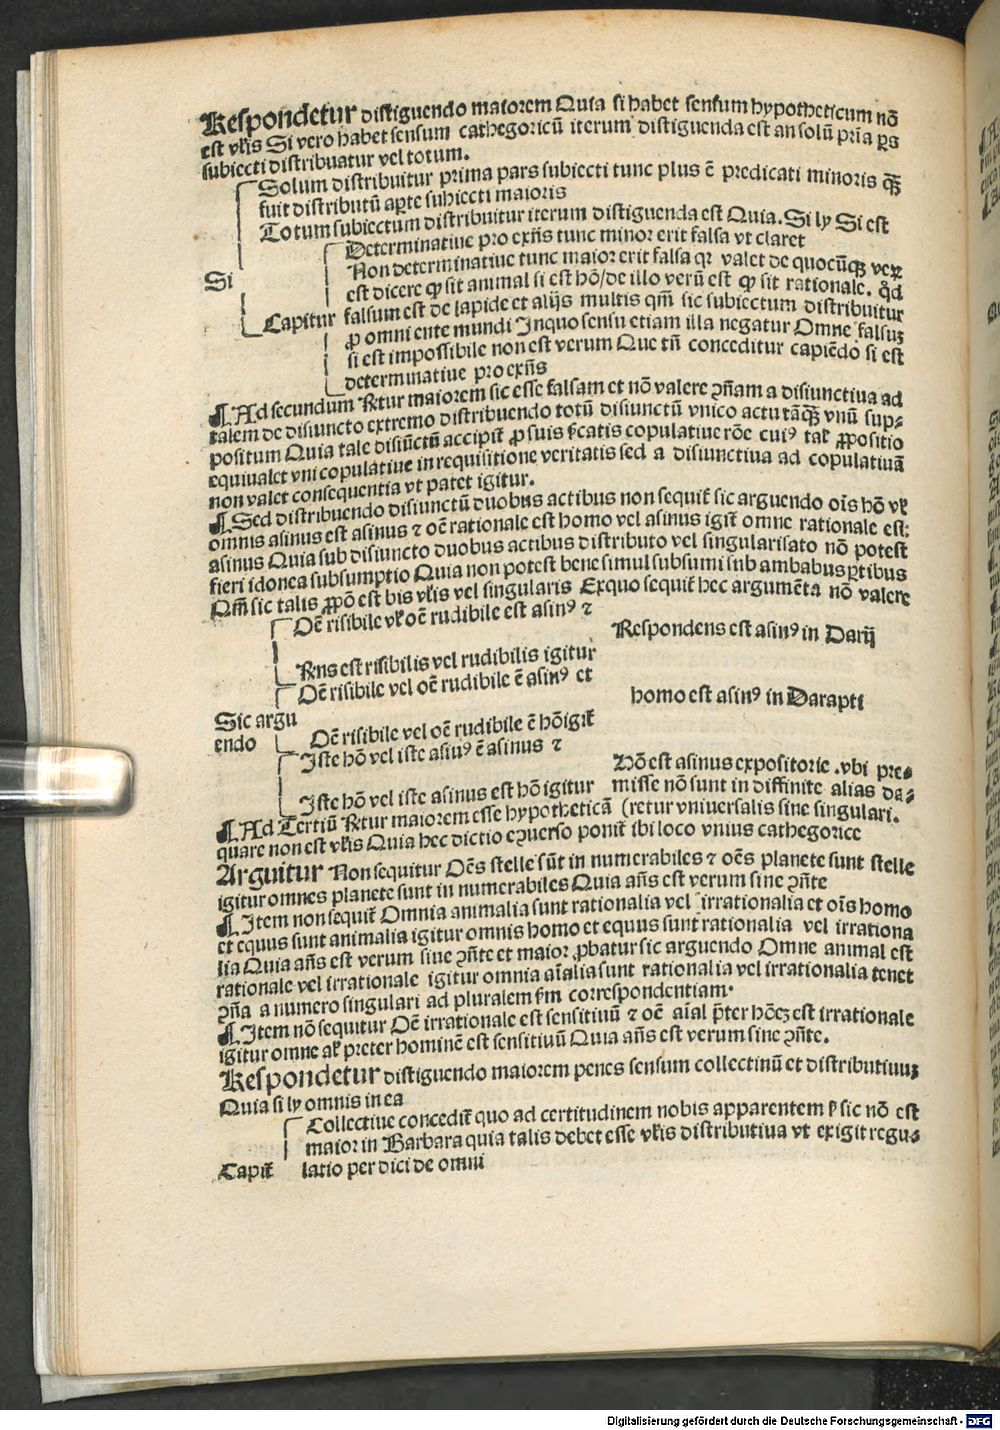 Respondetur distiguendo maiorem Quia si habet sensum hypotheticum nō
est vl̄is Si vero habet sensum cathegoricū iterum distiguenda est an solū prīa ꝑs
subiecti distribuatur vel totum.
Solum distribuitur prima pars subiecti tunc plus ē predicati minoris qꝫ̄
fuit distributū aꝑte subiecti maioris
Totum subiectum distribuitur iterum distiguenda est Quia. Si ly Si est
Determinatiue pro exn̄s tunc minor erit falsa vt claret
Non determinatiue tunc maior erit falsa qꝛ valet de quocūqꝫ veꝝ
Si
est dicere ꝙ sit animal si est hō/de illo verū est ꝙ sit rationale. qd̄
Capitur falsum est de lapide et alijs multis qm̄ sic subiectum distribuitur
ꝓ omni ente mundi Inquo sensu etiam illa negatur Omne falsuꝫ
si est impossibile non est verum Que tn̄ conceditur capiēdo si est
determinatiue pro exn̄s
¶ Ad secundum Rn̄tur maiorem sic esse falsam et nō valere ꝯn̄am a disiunctiua ad
talem de disiuncto extremo distribuendo totū disiunctū vnico actu tāqꝫ̄ vnū sup-
positum Quia tale disiūctū accipit̄ ꝓ suis sīcatis copulatiue rōe cuiꝰ tal̄ ꝓpositio
equiualet vni copulatiue in requisitione veritatis sed a disiunctiua ad copulatiuā
non valet consequentia vt patet igitur.
¶ Sed distribuendo disiunctū duobus actibus non sequit̄ sic arguendo oīs hō vl̄
omnis asinus est asinus ⁊ oē rationale est homo vel asinus igit̄ omne rationale est
asinus Quia sub disiuncto duobus actibus distributo vel singularisato nō potest
fieri idonea subsumptio Quia non potest bene simul subsumi sub ambabus ꝑtibus
Qm̄ sic talis ꝓpō est bis vl̄is vel singularis Exquo sequit̄ hec argumēta nō valere
Oē risibile vl̄ oē rudibile est asinꝰ ⁊
Respondens est asinꝰ in Darij
Rn̄s est risibilis vel rudibilis igitur
Oē risibile vel oē rudibile ē asinꝰ et
homo est asinꝰ in Darapti
Sic argu
endo
Oē risibile vel oē rudibile ē hō igit̄
Iste hō vel iste asinꝰ ē asinus ⁊
Hō est asinus expositorie .vbi pre-
Iste hō vel iste asinus est hō igitur misse nō sunt in diffinite alias da-
¶ Ad Tertiū Rn̄tur maiorem esse hypotheticā (retur vniuersalis sine singulari.
quare non est vl̄is Quia hec dictio eꝯuerso ponit̄ ibi loco vnius cathegorice
Arguitur Non sequitur Oēs stelle sūt in numerabiles ⁊ oēs planete sunt stelle
igitur omnes planete sunt in numerabiles Quia an̄s est verum sine ꝯn̄te
¶ Item non sequit̄ Omnia animalia sunt rationalia vel irrationalia et oīs homo
et equus sunt animalia igitur omnis homo et equus sunt rationalia vel irrationa
lia Quia an̄s est verum sine ꝯn̄te et maior ꝓbatur sic arguendo Omne animal est
rationale vel irrationale igitur omnia aīalia sunt rationalia vel irrationalia tenet
ꝯn̄a a numero singulari ad pluralem sm̄ correspondentiam.
¶ Item nō sequitur Oē irrationale est sensitiuū ⁊ oē aīal p̄ter hōeꝫ est irrationale
igitur omne al̄ preter hominē est sensitiuū Quia an̄s est verum sine ꝯn̄te.
Respondetur distiguendo maiorem penes sensum collectiuū et distributiuuꝫ
Quia si ly omnis in ea
Collectiue concedit̄ quo ad certitudinem nobis apparentem ⁊ sic nō est
maior in Barbara quia talis debet esse vl̄is distributiua vt exigit regu-
Capit̄ latio per dici de omni
Digitalisierung gefördert durch die Deutsche Forschungsgemeinschaft - DFG